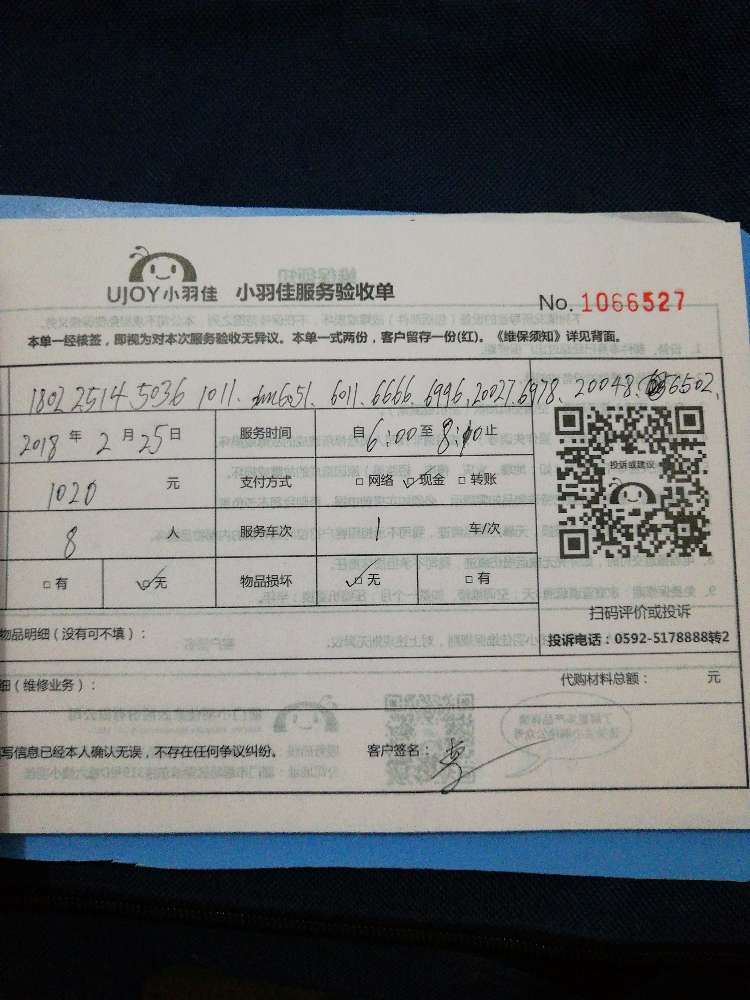 UJOY小羽佳 小羽佳服务验收单 No. 1066527
本单一经核签，即视为对本次服务验收无异议。本单一式两份，客户留存一份(红)。《维保须知》详见背面。
1802 2514 5036 1011. 6051. 6011. 6666. 6996. 20027. 6978. 20048. 6502.
2018 年 2 月 25 日 服务时间 自 6:00 至 8:10 止
1020 元 支付方式 □ 网络 ☑ 现金 □ 转账
投诉或建议
8 人 服务车次 1 车/次
□ 有 ☑ 无 物品损坏 ☑ 无 □ 有
扫码评价或投诉
物品明细（没有可不填）： 投诉电话：0592-5178888转2
细（维修业务）： 代购材料总额： 元
写信息已经本人确认无误，不存在任何争议纠纷。 客户签名：